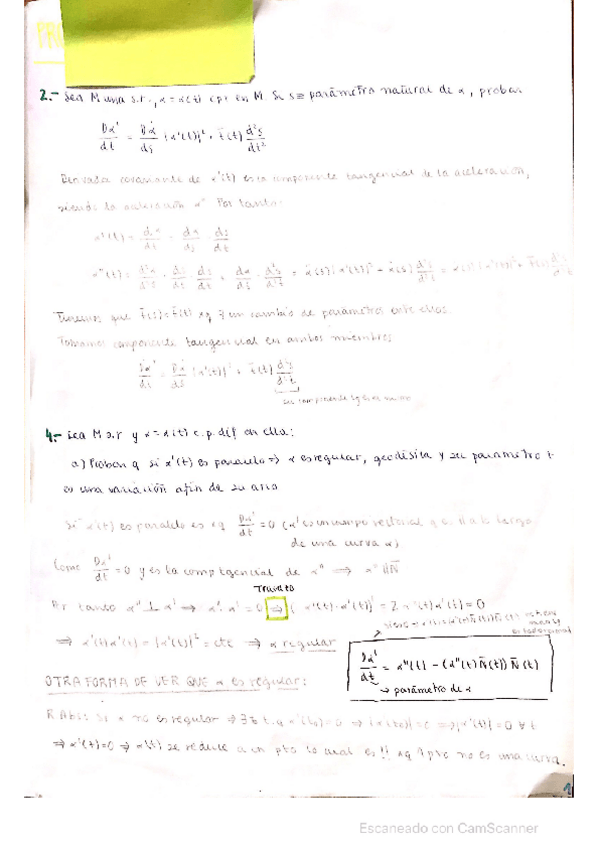 PRO
2.- Sea M una s.r., α = α(t) c.p.r en M. Si s ≡ parámetro natural de α, probar
Dα'/dt = Dα̇/ds |α'(t)|² + t̄(t) d²s/dt²
Derivada covariante de α'(t) es la componente tangencial de la aceleración,
siendo la aceleración α''. Por tanto:
α'(t) = dα/dt = dα/ds · ds/dt
α''(t) = d²α/d²s · ds/dt · ds/dt + dα/ds · d²s/d²t
Tenemos que t̄(s) = t̄(t) xq ∃ un cambio de parámetros entre ellos.
Tomamos componente tangencial en ambos miembros
d²s/d²t
su componente tg es
4.- Sea M s.r y α = α(t) c.p. dif en ella:
a) Probar q si α'(t) es paralelo ⇒ α es regular, geodésica y su parámetro t
es una variación afín de su arco
Si α'(t) es paralelo es xq Dα'/dt = 0 (α' es un campo vectorial q es // a lo largo
de una curva α)
Como Dα'/dt = 0 y es la comp tgencial de α'' ⇒ α'' ∥ N̄
Truco
Por tanto α'' ⊥ α' ⇒ α''·α' = 0 ⇒ (α'(t)·α'(t))' = 2α''(t)α'(t) = 0
⇒ α'(t)α'(t) = |α'(t)|² = cte ⇒ α regular
Dα'/dt = α''(t) - (α''(t) N̄(t)) N̄(t)
→ parámetro de α
OTRA FORMA DE VER QUE α es regular:
R.Abs: Si α no es regular ⇒ ∃ t₀ t.q α'(t₀) = 0 ⇒ |α'(t₀)| = 0 ⇒ |α'(t)| = 0 ∀ t
⇒ α'(t) = 0 ⇒ α(t) se reduce a un pto lo cual es !! xq 1 pto no es una curva.
Escaneado con CamScanner